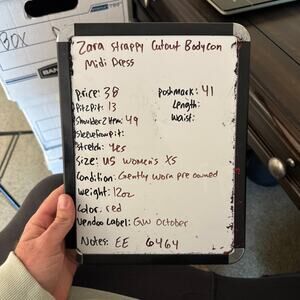 BOX
BANKE
Zara Strappy Cutout Bodycon
Midi Dress
Price: 38
Poshmark: 41
Pit2Pit: 13
Length:
Shoulder2Hem: 49
Waist:
Sleevefrompit:
Stretch: yes
Size: US Women's XS
Condition: Gently worn pre owned
Weight: 12oz
Color: red
Vendoo Label: GW October
Notes: EE 6464